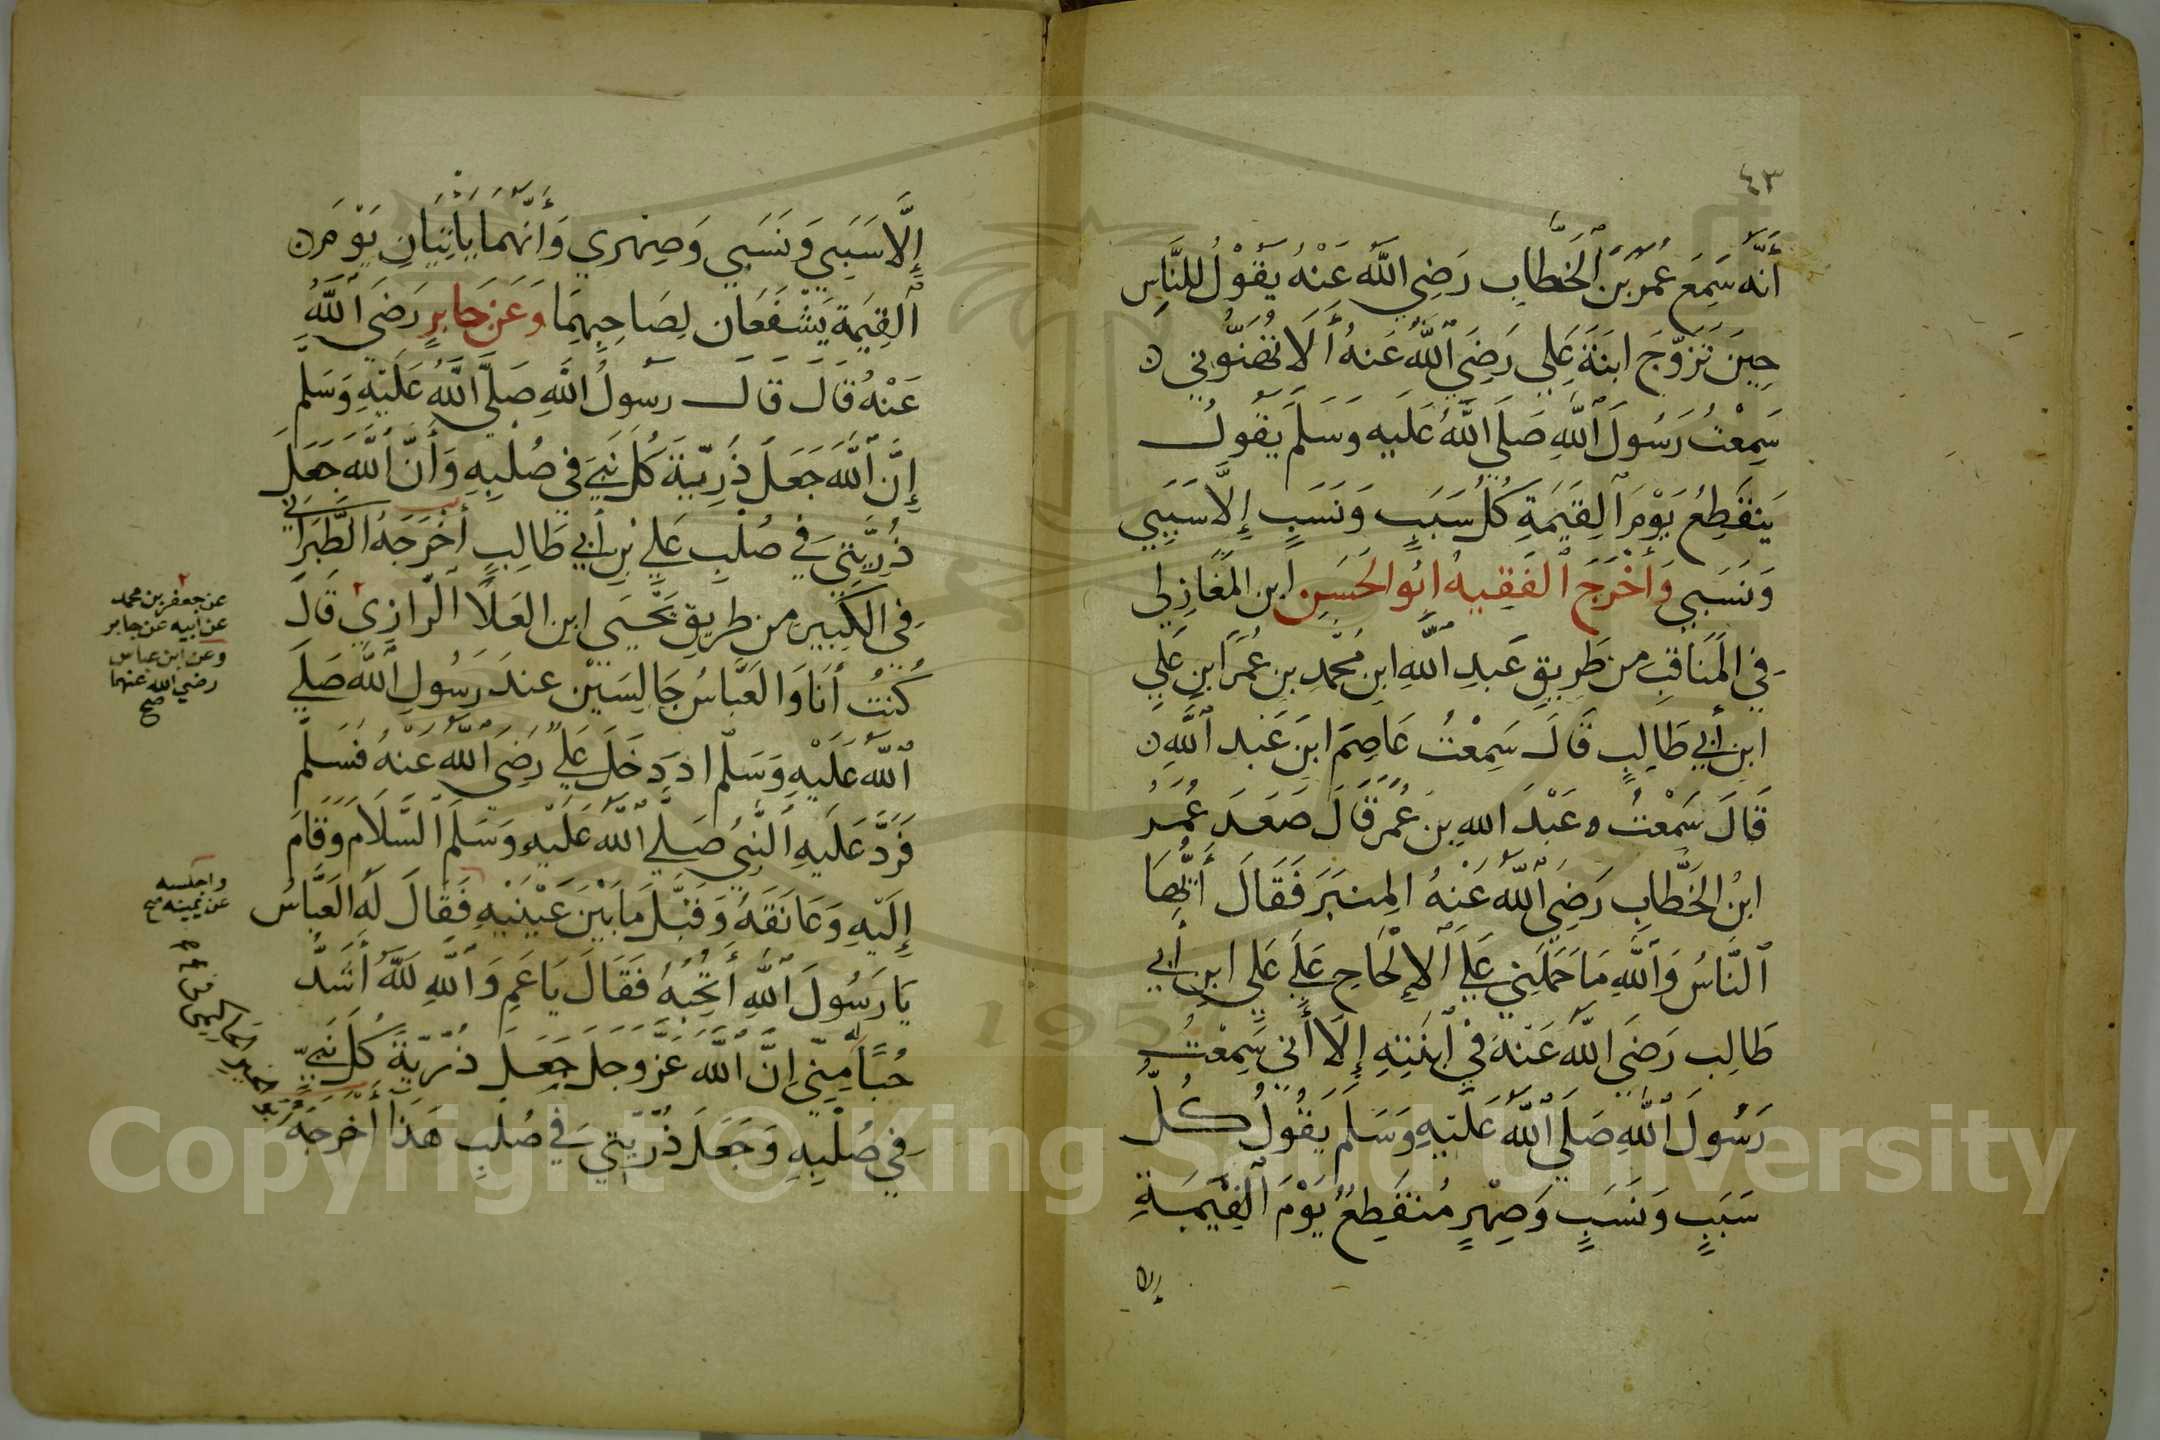 ٤٣
أَنَّهُ سَمِعَ عُمَرَ بْنَ ٱلْخَطَّابِ رَضِيَ اللَّهُ عَنْهُ يَقُوْلُ لِلنَّاسِ
حِينَ تَزَوَّجَ ابْنَةَ عَلِي رَضِيَ ٱللَّهُ عَنهُ أَلَا تُهَنُّونِي
سَمِعْتُ رَسُولَ ٱللَّهِ صَلَّى اللَّهُ عَلَيهِ وَسَلَّمَ يَقُولُ
يَنقَطِعُ يَوْمَ ٱلْقِيَمَةِ كُلُّ سَبَبٍ وَنَسَبٍ إِلَّا سَبَبِي
وَنَسَبِي وَأَخْرَجَ ٱلْفَقِيهُ ابُو الحَسَنِ ابن المَغَازِلي
في المَنَاقِبِ مِن طَرِيقِ عَبدِ ٱللَّهِ ابنِ مُحَمَّدِ بنِ عُمَرَ ابنِ عَلِي
ابنِ أَبِي طَالِبٍ قَالَ سَمِعْتُ عَاصِمَ ابنَ عَبدِ ٱللَّهِ
قَالَ سَمِعْتُ عَبْدَ اللهِ بنَ عُمَرَ قَالَ صَعَدَ عُمَرُ
ابنُ الخَطَّابِ رَضِيَ ٱللَّهُ عَنْهُ المِنبَرَ فَقَالَ أَيُّهَا
ٱلنَّاسُ وَٱللَّهِ مَا حَمَلَنِي عَلَى ٱلإِلْحَاحِ عَلَى عَلِي ابنِ أَبِي
طَالِب رَضِيَ اللَّهُ عَنْهُ فِي ٱبْنَتِهِ إِلَّا أَنِّي سَمِعْتُ
رَسُولَ ٱللَّهِ صَلَّى ٱللَّهُ عَلَيهِ وَسَلَّمَ يَقُولُ كُلُّ
سَبَبٍ وَنَسَبٍ وَصِهْرٍ مُنقَطِعٌ يَوْمَ ٱلْقِيَمَةِ
إلا
إِلَّا سَبَبِي وَنَسَبِي وَصِهْرِي وَأَنَّهُمَا يَأْتِيَانِ يَوْمَ
ٱلْقِيَمَةِ يَشْفَعَانِ لِصَاحِبِهِمَا وَعَن جَابِرٍ رَضِيَ ٱللَّهُ
عَنْهُ قَالَ قَالَ رَسُولُ اللَّهِ صَلَّى ٱللَّهُ عَلَيْهِ وَسَلَّمَ
إِنَّ ٱللَّهَ جَعَلَ ذُرِّيَّةَ كُلِّ نَبِيٍّ فِي صُلْبِهِ وَأَنَّ ٱللَّهَ جَعَلَ
ذُرِّيَّتِي فِي صُلْبِ عَلِي بْنِ أَبِي طَالِبٍ أَخْرَجَهُ الطَّبَرَانِي
فِي الكَبِيرِ مِن طَرِيقِ يَحْيَى ابنِ العَلَا ٱلرَّازِي قَالَ
كُنتُ أَنَا وَالعَبَّاسُ جَالِسَيْنِ عِندَ رَسُولِ ٱللَّهِ صَلَّى
ٱللَّهُ عَلَيْهِ وَسَلَّمَ اذ دَخَلَ عَلِي رَضِيَ ٱللَّهُ عَنْهُ فَسَلَّمَ
فَرَدَّ عَلَيهِ ٱلنَّبِيُّ صَلَّى ٱللَّهُ عَلَيْهِ وَسَلَّمَ ٱلسَّلَامَ وَقَامَ
إِلَيْهِ وَعَانَقَهُ وَقَبَّلَ مَا بَيْنَ عَيْنَيْهِ فَقَالَ لَهُ العَبَّاسُ
يَا رَسُولَ ٱللَّهِ أَتُحِبُّهُ فَقَالَ يَا عَمِ وَٱللَّهِ لَلَّهُ أَشَدُّ
حُبًّا لَهُ مِنِّي إِنَّ ٱللَّهَ عَزَّ وَجَلَّ جَعَلَ ذُرِّيَّةَ كُلِّ نَبِيٍّ
فِي صُلْبِهِ وَجَعَلَ ذُرِّيَّتِي فِي صُلبِ هَذَا أَخْرَجَهُ
عن جعفر بن محمد
عن أبيه عن جابر
وعن ابن عباس
رضي الله عنهما
صح
واجلسه
عن يمينه صح
Copyright © King Saud University
195